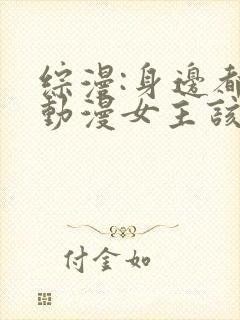 綜漫:身邊都
動漫女主該
付金如